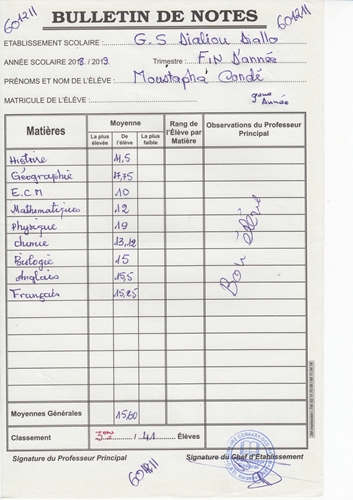 601211
601211
BULLETIN DE NOTES
ETABLISSEMENT SCOLAIRE : G.S Dialiou Diallo
ANNÉE SCOLAIRE 2018 / 2019 Trimestre : FIN D'année
PRÉNOMS ET NOM DE L'ÉLÈVE : Moustapha Condé
MATRICULE DE L'ÉLÈVE : Année
Matières Moyenne Rang de l'Élève par Matière Observations du Professeur Principal
La plus élevée De l'élève La plus faible
Histoire 11,5
Géographie 17,75
E.C.M 10
Mathématiques 12
Physique 19
Chimie 13,12
Biologie 15
Anglais 15,5
Français 15,25
Bon élève
Moyennes Générales 15,60
Classement 3ème / 41 Élèves
Signature du Professeur Principal Signature du Chef d'Etablissement
601211